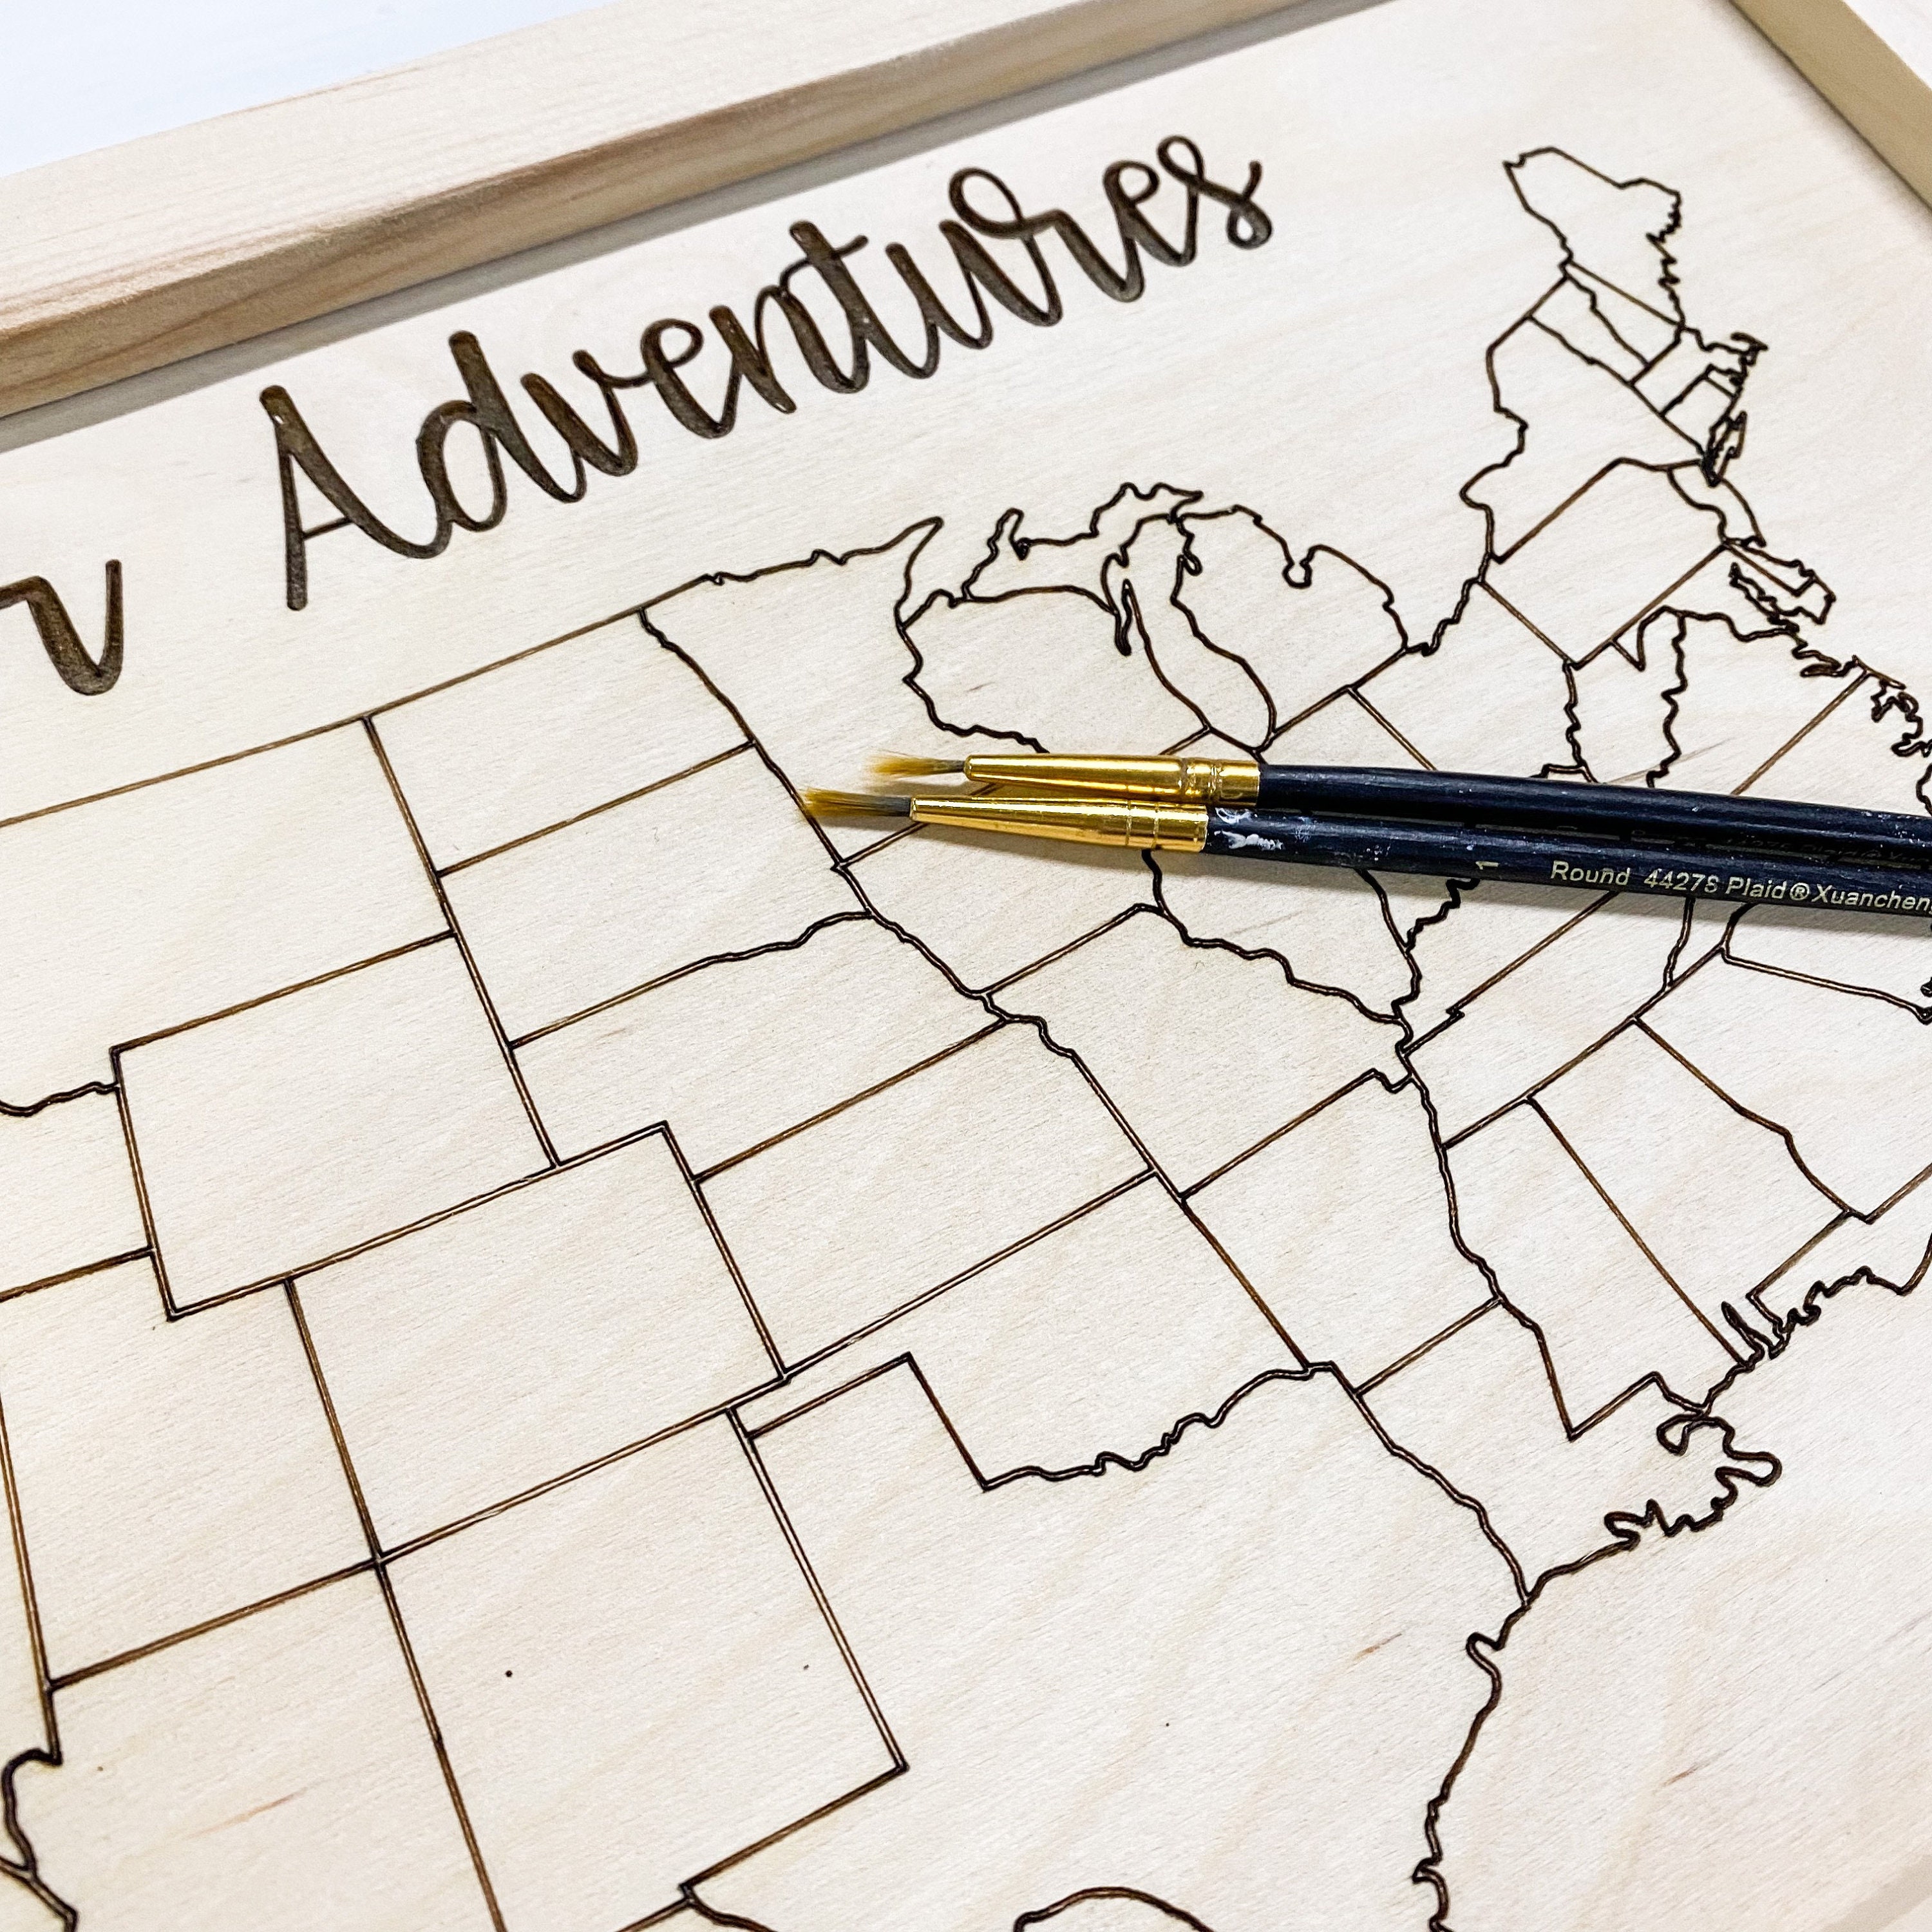 r Adventures
1 Round 44278 Plaid® Xuanchen